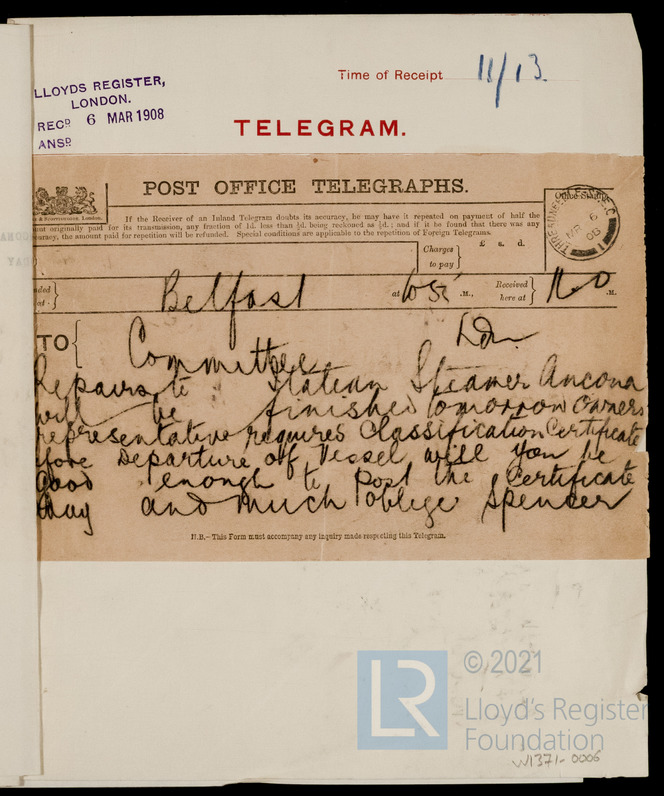 Time of Receipt 11/13.
LLOYDS REGISTER,
LONDON.
RECD 6 MAR 1908
ANSD
TELEGRAM.
POST OFFICE TELEGRAPHS.
If the Receiver of an Inland Telegram doubts its accuracy, he may have it repeated on payment of half the
originally paid for its transmission, any fraction of 1d. less than ½d. being reckoned as ½d.; and if it be found that there was any
the amount paid for repetition will be refunded. Special conditions are applicable to the repetition of Foreign Telegrams.
Charges to pay £ s. d.
Belfast at 10 55 .M., Received here at 11-0 .M.
TO Committee Ldn
Repairs to Italian Steamer Ancona
will be finished tomorrow owners
representative requires classification certificate
before departure of vessel will you be
good enough to post the certificate
and much oblige Spencer
N.B.—This Form must accompany any inquiry made respecting this Telegram.
LR
© 2021
Lloyd's Register
Foundation
W1371-0006